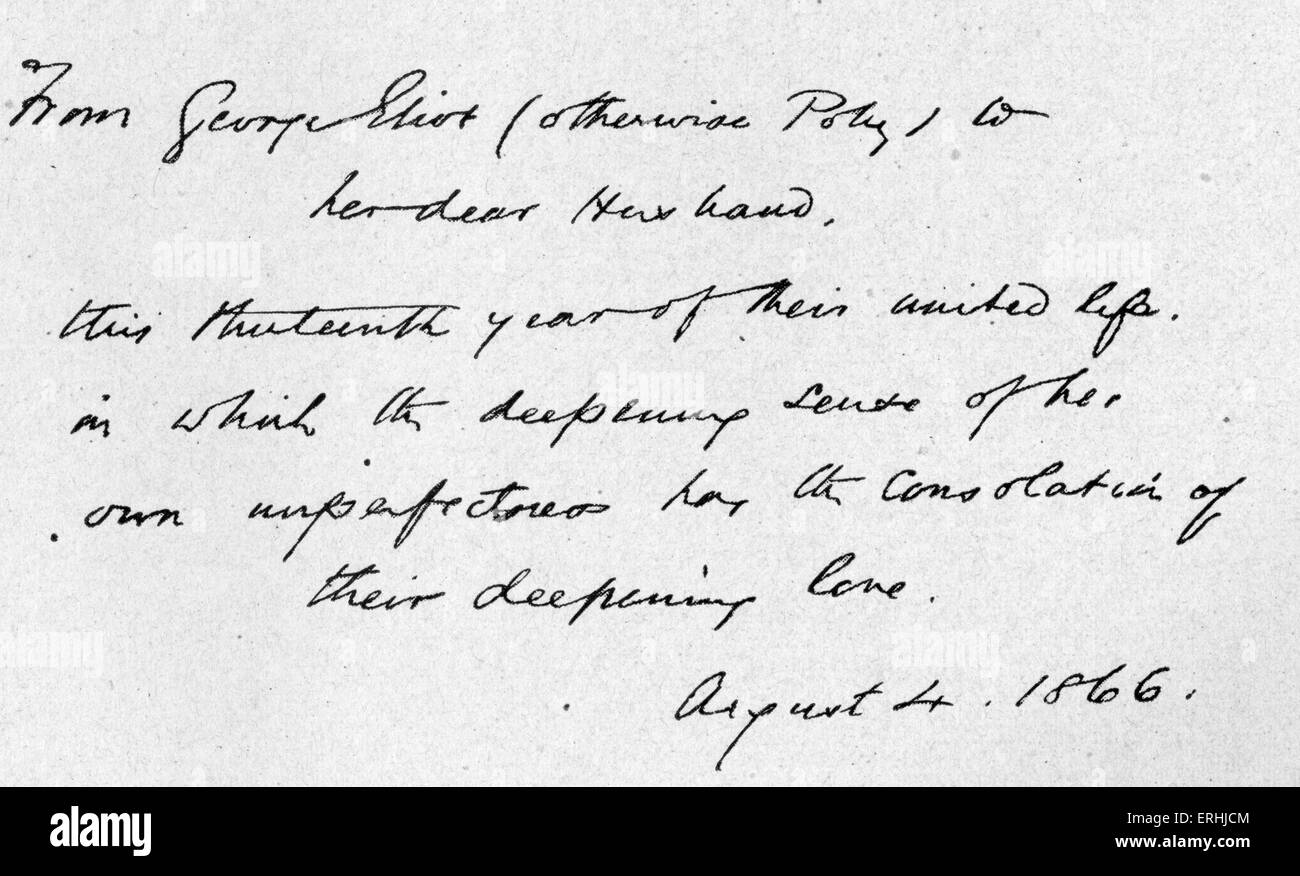 From George Eliot (otherwise Polly) to
her dear Husband,
this thirteenth year of their united life,
in which the deepening sense of her
own imperfectness has the consolation of
their deepening love.
August 4. 1866.
alamy
Image ID: ERHJCM
www.alamy.com